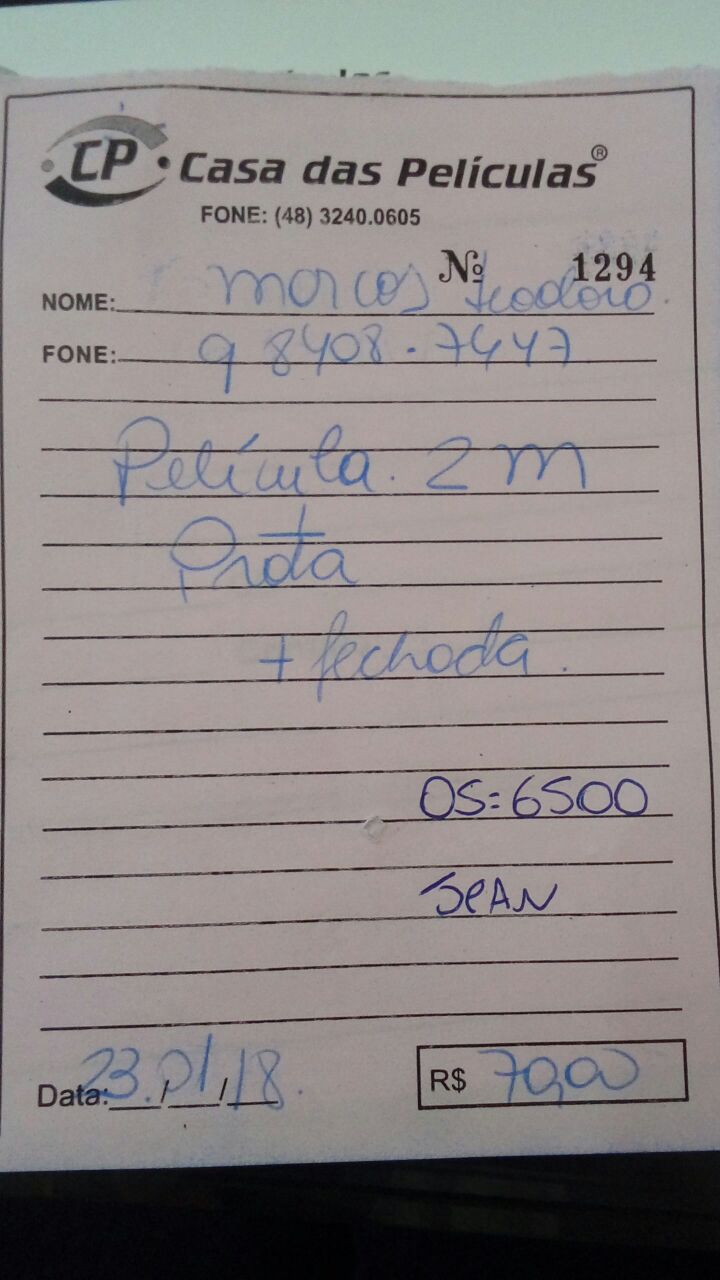 CP Casa das Películas®
FONE: (48) 3240.0605
Nº 1294
NOME: Marcos Teodoro.
FONE: 9 8408.7447
Película. 2 m
Prata
+ fechada.
OS: 6500
JEAN
Data: 23/01/18.
R$ 70,00